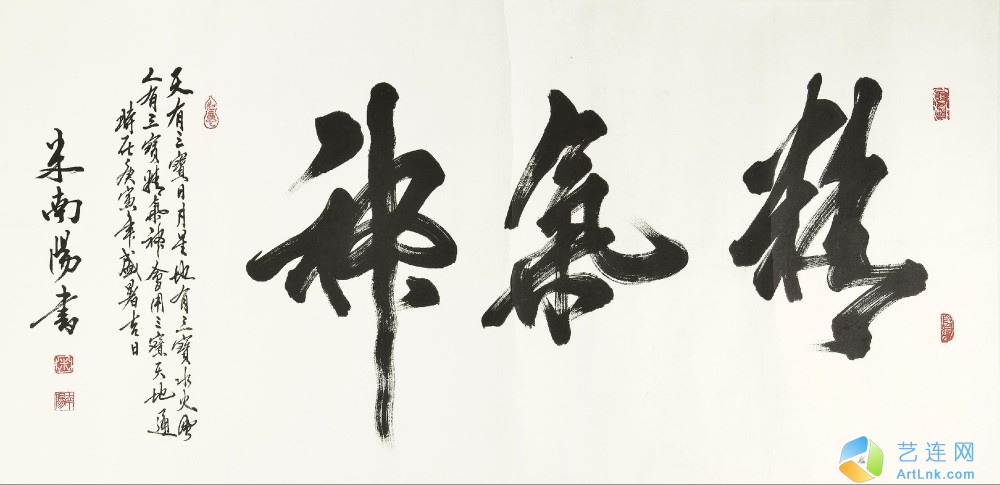 精氣神
天有三寶日月星地有三寶水火風
人有三寶精氣神會用三寶天地通
時在庚寅年盛暑吉日
米南陽書
艺连网
ArtLnk.com